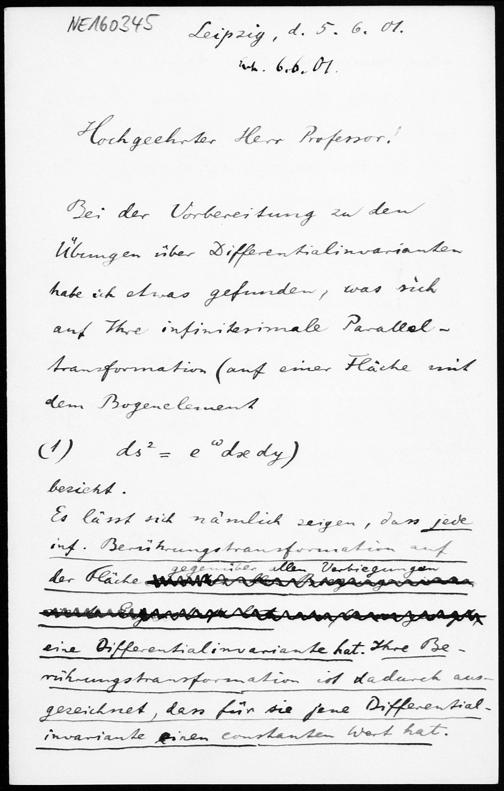 NE160345
Leipzig, d. 5. 6. 01.
6.6.01.
Hochgeehrter Herr Professor!
Bei der Vorbereitung zu den
Übungen über Differentialinvarianten
habe ich etwas gefunden, was sich
auf Ihre infinitesimale Parallel-
transformation (auf einer Fläche mit
dem Bogenelement
(1) ds² = e^ω dx dy)
bezieht.
Es lässt sich nämlich zeigen, dass jede
inf. Berührungstransformation auf
gegenüber allen Verbiegungen
der Fläche
eine Differentialinvariante hat. Ihre Be-
rührungstransformation ist dadurch aus-
gezeichnet, dass für sie jene Differential-
invariante einen constanten Wert hat.